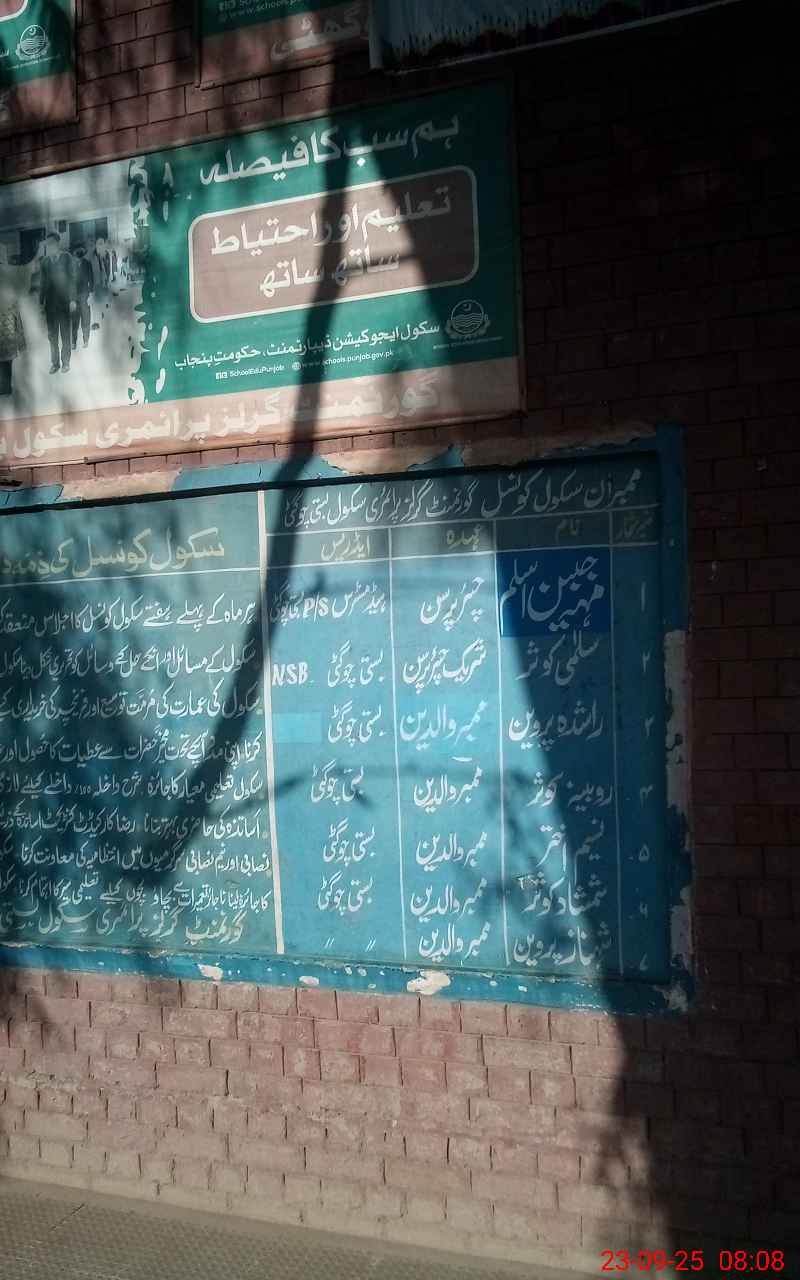 ہم سب کا فیصلہ
تعلیم اور احتیاط
ساتھ ساتھ
سکول ایجوکیشن ڈیپارٹمنٹ، حکومتِ پنجاب
SchoolEduPunjab www.schools.punjab.gov.pk
گورنمنٹ گرلز پرائمری سکول
ممبران سکول کونسل گورنمنٹ گرلز پرائمری سکول بستی چوگٹی
نمبر شمار نام عہدہ ایڈریس
۱ مہہ جبین اسلم چیئر پرسن ہیڈمسٹریس P/S بستی چوگٹی
۲ سلمیٰ کوثر شریک چیئرپرسن بستی چوگٹی NSB.
۳ راشدہ پروین ممبر والدین بستی چوگٹی
۴ روبینہ کوثر ممبر والدین بستی چوگٹی
۵ نسیم اختر ممبر والدین بستی چوگٹی
۶ شمشاد کوثر ممبر والدین بستی چوگٹی
۷ شہناز پروین ممبر والدین 〃 〃
سکول کونسل کی ذمہ د
ہر ماہ کے پہلے ہفتے سکول کونسل کا اجلاس منعقد
سکول کے مسائل اور انکے حل کیلئے وسائل کو تحریری شکل دینا
سکول کی عمارت کی مرمت توسیع اور فرنیچر کی خریداری
کرنا۔ اپنی مدد آپ کے تحت مخیر حضرات سے عطیات کا حصول اور
سکول تعلیمی معیار کا جائزہ۔ شرح داخلہ ۱۰۰٪ داخلے کیلئے
اساتذہ کی حاضری بہتر بنانا۔ رضا کار کیڈٹ کنٹریکٹ اساتذہ
نصابی اور غیر نصابی سرگرمیوں میں انتظامیہ کی معاونت کرنا۔
کا جائزہ لینا ناجائز تعمیرات سے بچاؤ بچوں کیلئے تعلیمی سیر کا اہتمام کرنا
گورنمنٹ گرلز پرائمری سکول
23-09-25 08:08